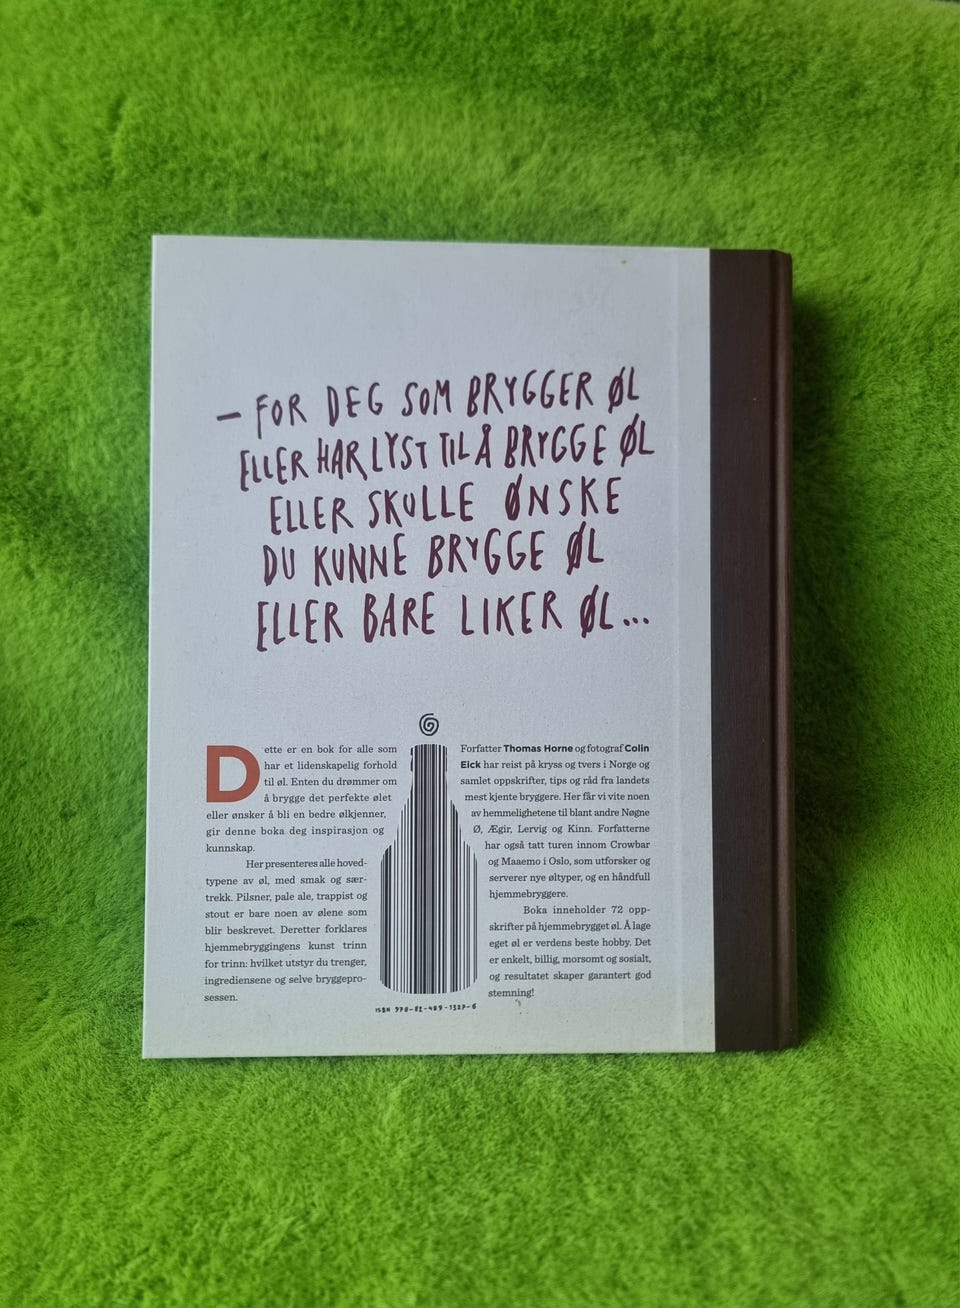 – FOR DEG SOM BRYGGER ØL
ELLER HAR LYST TIL Å BRYGGE ØL
ELLER SKULLE ØNSKE
DU KUNNE BRYGGE ØL
ELLER BARE LIKER ØL...
Dette er en bok for alle som
har et lidenskapelig forhold
til øl. Enten du drømmer om
å brygge det perfekte ølet
eller ønsker å bli en bedre ølkjenner,
gir denne boka deg inspirasjon og
kunnskap.
Her presenteres alle hoved-
typene av øl, med smak og sær-
trekk. Pilsner, pale ale, trappist og
stout er bare noen av ølene som
blir beskrevet. Deretter forklares
hjemmebryggingens kunst trinn
for trinn: hvilket utstyr du trenger,
ingrediensene og selve bryggepro-
sessen.
Forfatter Thomas Horne og fotograf Colin
Eick har reist på kryss og tvers i Norge og
samlet oppskrifter, tips og råd fra landets
mest kjente bryggere. Her får vi vite noen
av hemmelighetene til blant andre Nøgne
Ø, Ægir, Lervig og Kinn. Forfatterne
har også tatt turen innom Crowbar
og Maaemo i Oslo, som utforsker og
serverer nye øltyper, og en håndfull
hjemmebryggere.
Boka inneholder 72 opp-
skrifter på hjemmebrygget øl. Å lage
eget øl er verdens beste hobby. Det
er enkelt, billig, morsomt og sosialt,
og resultatet skaper garantert god
stemning!
ISBN 978-82-489-1327-6